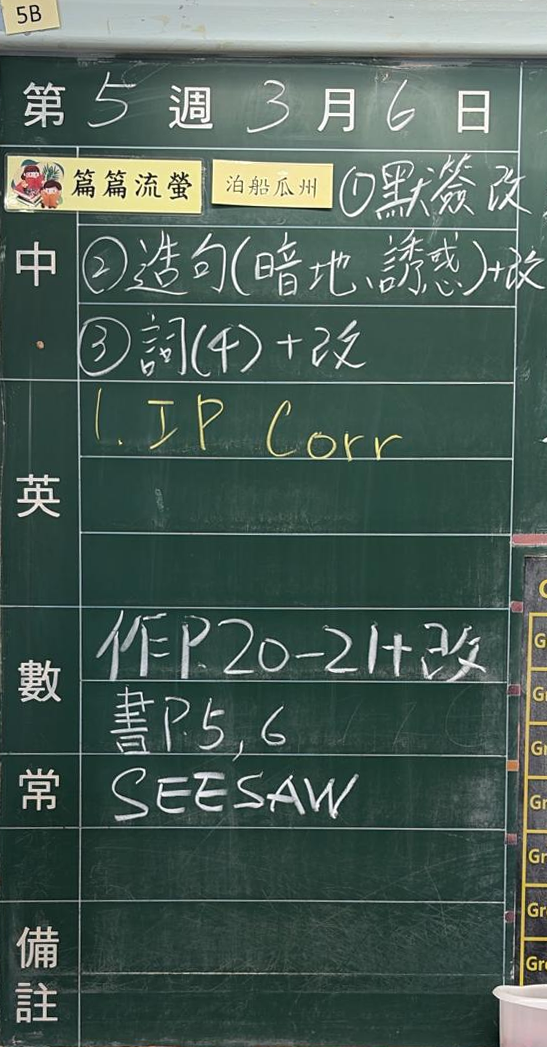 5B
第 5 週 3 月 6 日
篇篇流螢 泊船瓜州 ①默簽改
中 ②造句(暗地、誘惑)+改
③詞(4)+改
英 1. IP Corr
數 作P.20-21+改
書P.5,6
常 SEESAW
備註
Gr
Gr
Gr
Gr
Gr
Gre